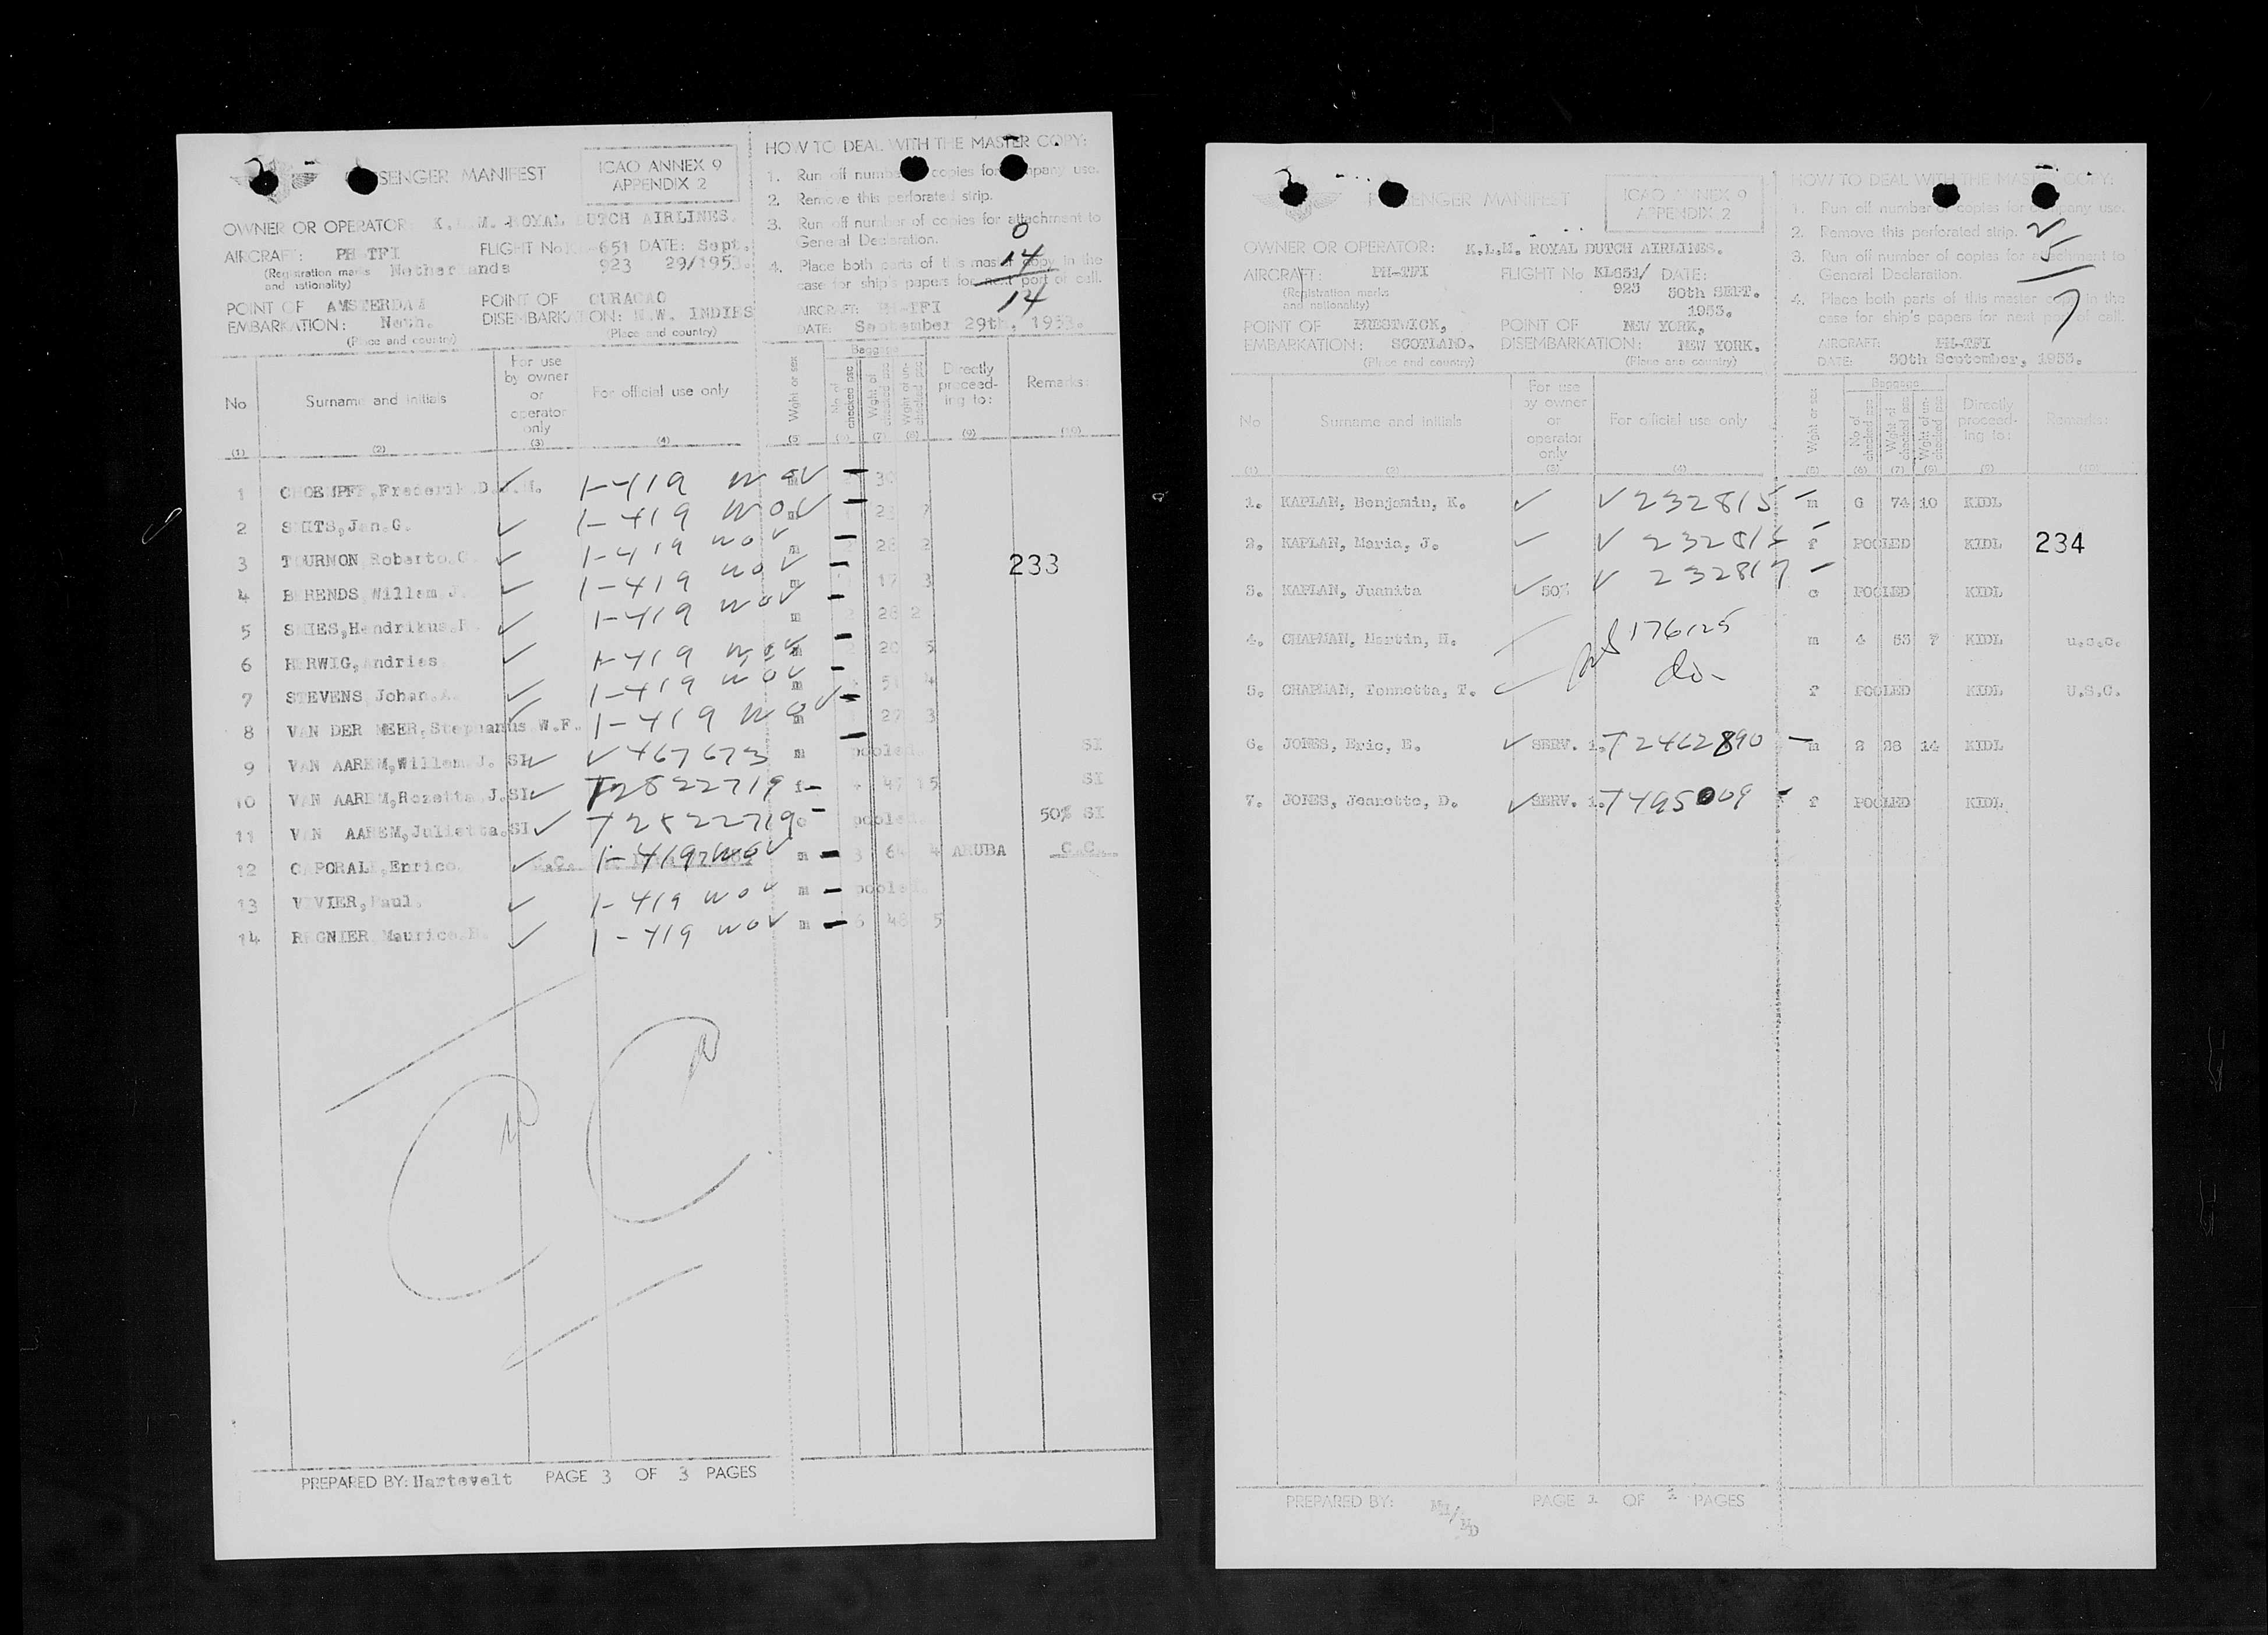 SENGER MANIFEST
ICAO ANNEX 9
APPENDIX 2
HOW TO DEAL WITH THE MASTER COPY:
1. Run off numb copies for mpany use.
2. Remove this perforated strip.
3. Run off number of copies for attachment to
General Declaration.
4. Place both parts of this master copy in the
case for ship's papers for next port of call.
0
14
14
OWNER OR OPERATOR: K.L.M. ROYAL DUTCH AIRLINES.
AIRCRAFT: PH-TFI FLIGHT No 651 DATE: Sept.
(Registration marks Netherlands 923 29/1953.
and nationality)
POINT OF AMSTERDAM POINT OF CURACAO
EMBARKATION: Neth. DISEMBARKATION: N.W. INDIES
(Place and country) (Place and country)
AIRCRAFT: PH-TFI
DATE: September 29th, 1953.
No Surname and initials For use by owner or operator only For official use only Wght or sex Baggage No of checked pcs Wght of checked pcs Wght of un-checked pcs Directly proceed-ing to: Remarks:
(1) (2) (3) (4) (5) (6) (7) (8) (9) (10)
1 Frederik.D. ✓ 1-419 WOV 30
2 SMITS,Jan.G. ✓ 1-419 WOV m
3 TOURNON Roberto.C. ✓ 1-419 WOV m 28 2
4 BERENDS,Willem.J. ✓ 1-419 WOV m 17 3
5 SMIES,Hendrikus. ✓ 1-419 WOV m 2 28 2
6 HERWIG,Andries ✓ 1-419 WOV m 2 20 5
7 STEVENS Johan.A. ✓ 1-419 WOV m 4
8 VAN DER MEER,Stephanus.W.F. ✓ 1-419 WOV m 27 3
9 VAN AAREM,Willem.J. SI ✓ ✓ 467673 m pooled. SI
10 VAN AAREM,Rozetta.J.SI ✓ T2522719 f - 4 15 SI
11 VAN AAREM,Julietta.SI ✓ T2522719 c - pooled. 50% SI
12 CAPORALI,Enrico. ✓ 1-419 WOV m - 3 64 4 ARUBA C.C.
13 VIVIER,Paul. ✓ 1-419 WOV m - pooled.
14 REGNIER Maurice. ✓ 1-419 WOV m - 6 48 5
233
PREPARED BY: Hartevelt PAGE 3 OF 3 PAGES
SENGER MANIFEST
ICAO ANNEX 9
APPENDIX 2
HOW TO DEAL WITH THE MASTER COPY:
1. Run off number of copies for company use.
2. Remove this perforated strip.
3. Run off number of copies for attachment to
General Declaration.
4. Place both parts of this master copy in the
case for ship's papers for next port of call.
2
5
7
OWNER OR OPERATOR: K.L.M. ROYAL DUTCH AIRLINES.
AIRCRAFT: PH-TFI FLIGHT No KL651/ DATE:
(Registration marks 923 30th SEPT.
and nationality) 1953.
POINT OF PRESTWICK, POINT OF NEW YORK,
EMBARKATION: SCOTLAND. DISEMBARKATION: NEW YORK.
(Place and country) (Place and country)
AIRCRAFT: PH-TFI
DATE: 30th September, 1953.
No Surname and initials For use by owner or operator only For official use only Wght or sex Baggage No of checked pcs Wght of checked pcs Wght of un-checked pcs Directly proceed-ing to: Remarks:
(1) (2) (3) (4) (5) (6) (7) (8) (9) (10)
1. KAPLAN, Benjamin, K. ✓ ✓ 232815 - m 6 74 10 KIDL
2. KAPLAN, Maria, J. ✓ ✓ 232816 - f POOLED KIDL
234
3. KAPLAN, Juanita ✓ 50% ✓ 232817 - c POOLED KIDL
4. CHAPMAN, Martin, H. 176125 m 4 53 7 KIDL u.s.c.
5. CHAPMAN, Tonnetta, T. do- f POOLED KIDL U.S.C.
6. JONES, Eric, E. ✓ SERV. i. T2462890 - m 2 28 14 KIDL
7. JONES, Jeanette, D. ✓ SERV. i. T495009 - f POOLED KIDL
PREPARED BY: PAGE 1 OF 1 PAGES